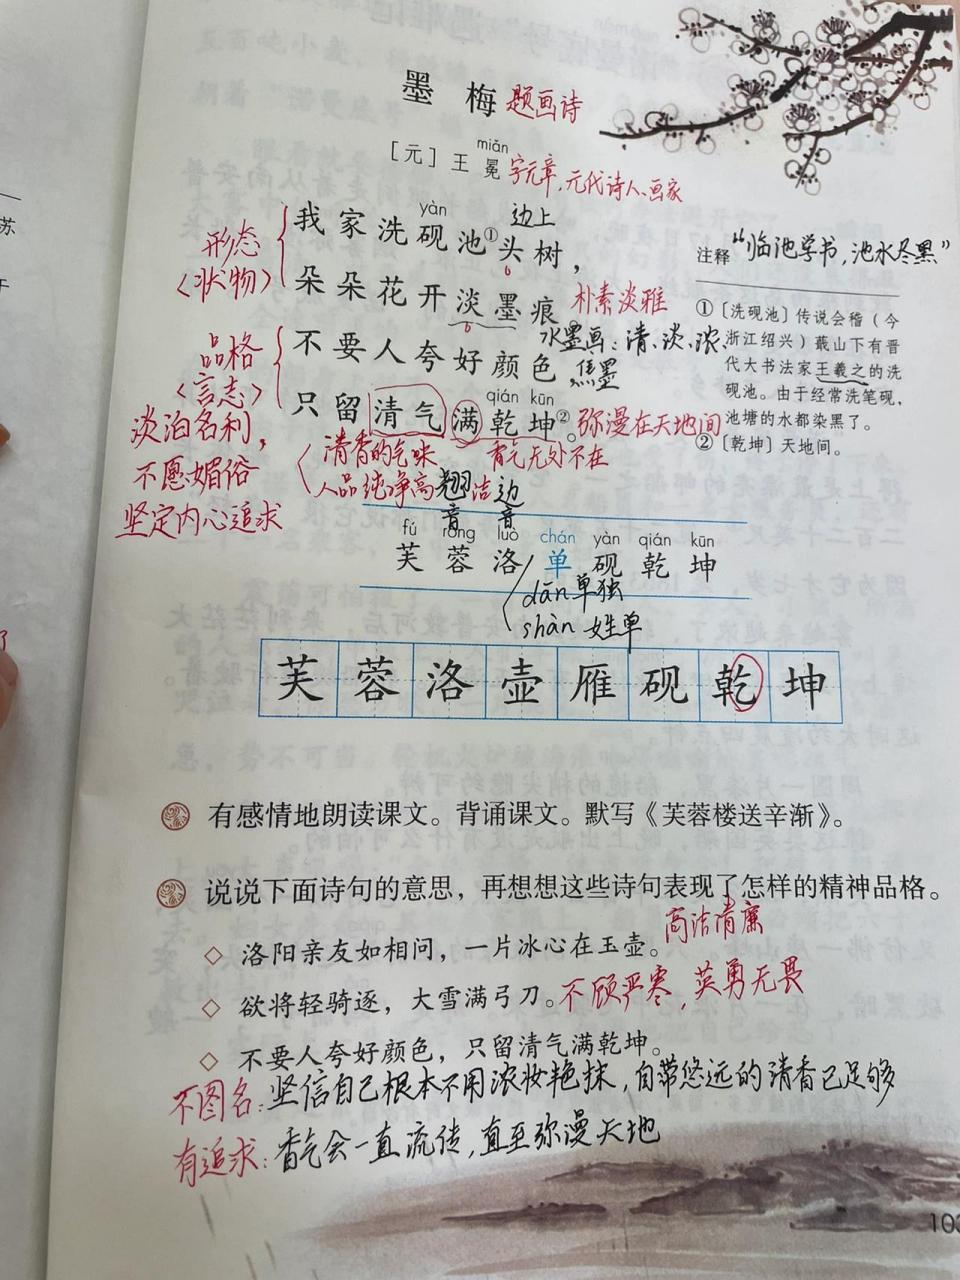 墨梅 题画诗
miǎn
[元]王冕 字元章,元代诗人、画家
yàn 边上
我家洗砚池①头树,
朵朵花开淡墨痕 朴素淡雅
水墨画:清、淡、浓、
焦墨
不要人夸好颜色
qián kūn
只留清气满乾坤②。弥漫在天地间
清香的气味 香气无处不在
人品纯净高洁
形态
〈状物〉
品格
〈言志〉
淡泊名利,
不愿媚俗
坚定内心追求
注释“临池学书,池水尽黑”
①〔洗砚池〕传说会稽(今
浙江绍兴)蕺山下有晋
代大书法家王羲之的洗
砚池。由于经常洗笔砚,
池塘的水都染黑了。
②〔乾坤〕天地间。
翘 边
音 音
fú róng luò chán yàn qián kūn
芙 蓉 洛 单 砚 乾 坤
dān 单独
shàn 姓单
芙 蓉 洛 壶 雁 砚 乾 坤
有感情地朗读课文。背诵课文。默写《芙蓉楼送辛渐》。
说说下面诗句的意思,再想想这些诗句表现了怎样的精神品格。
高洁清廉
◇ 洛阳亲友如相问,一片冰心在玉壶。
◇ 欲将轻骑逐,大雪满弓刀。不顾严寒,英勇无畏
◇ 不要人夸好颜色,只留清气满乾坤。
不图名:坚信自己根本不用浓妆艳抹,自带悠远的清香已足够
有追求:香气会一直流传,直至弥漫天地
103